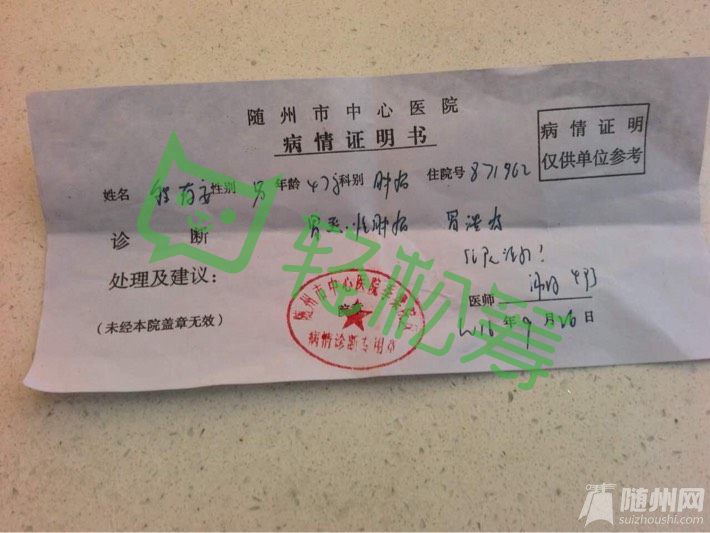 随州市中心医院
病情证明书
病情证明
仅供单位参考
姓名 性别 男 年龄 47岁 科别 肿瘤 住院号 871962
诊断 胃恶性肿瘤
处理及建议：
医师
(未经本院盖章无效)
2016年9月26日
随州市中心医院
病情诊断专用章
轻松筹
随州网
suizhoushi.com